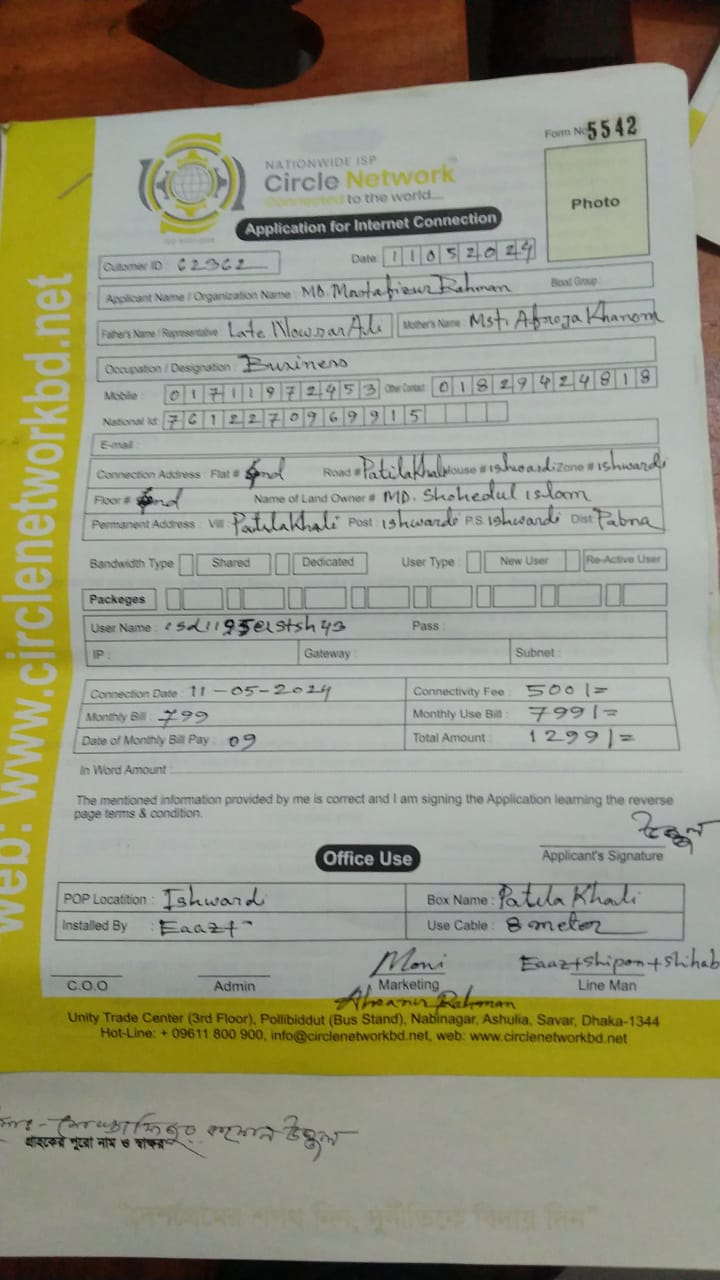 Form No 5542
NATIONWIDE ISP
Circle Network
Connected to the world....
Photo
Application for Internet Connection
Cutomer ID : 62362 Date: 11052024
Applicant Name / Organization Name : MD. Mostafizur Rahman Blood Group :
Father's Name / Representative : Late Nowsar Ali Mother's Name Mst. Afroja Khanom
Occupation / Designation : Business
Mobile : 01711972453 Other Contact 01829424818
National Id: 7612270969915
E-mail :
Connection Address : Flat # Road # Patilakhali House # ishwardi Zone # ishwardi
Floor # Name of Land Owner # MD. Shohedul islam
Permanent Address : Vill Patilakhali Post : ishwardi P.S ishwardi Dist: Pabna
Bandwidth Type Shared Dedicated User Type : New User Re-Active User
Packeges
User Name : Pass :
IP : Gateway : Subnet :
Connection Date : 11-05-2024 Connectivity Fee : 500/=
Monthly Bill : 799 Monthly Use Bill : 799/=
Date of Monthly Bill Pay : 09 Total Amount : 1299/=
In Word Amount
The mentioned information provided by me is correct and I am signing the Application learning the reverse
page terms & condition.
উজ্জ্বল
Applicant's Signature
Office Use
POP Locatition : Ishwardi Box Name : Patila Khali
Installed By : Eaaz+ Use Cable : 8 meter
Moni Eaaz+Shipon+Shihab
C.O.O Admin Marketing Line Man
Rahman
Unity Trade Center (3rd Floor), Pollibiddut (Bus Stand), Nabinagar, Ashulia, Savar, Dhaka-1344
Hot-Line: + 09611 800 900, info@circlenetworkbd.net, web: www.circlenetworkbd.net
web: www.circlenetworkbd.net
মোস্তাফিজুর রহমান উজ্জ্বল
গ্রাহকের পুরো নাম ও স্বাক্ষর
"দেশপ্রেমের শপথ নিন, দুর্নীতিকে বিদায় দিন"